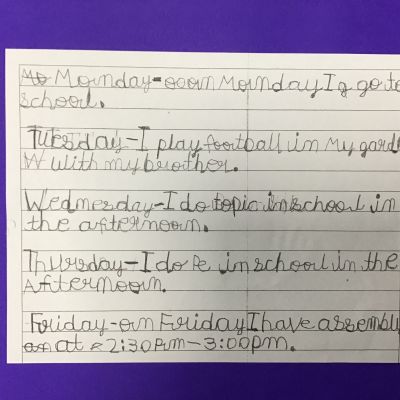 Monday-on Monday I go to
school.
Tuesday-I play football in my gard
with my brother.
Wednesday-I do topic in school in
the afternoon.
Thursday-I do Pe in school in the
Afternoon.
Friday-on Friday I have assembly
at 2:30Pm-3:00pm.